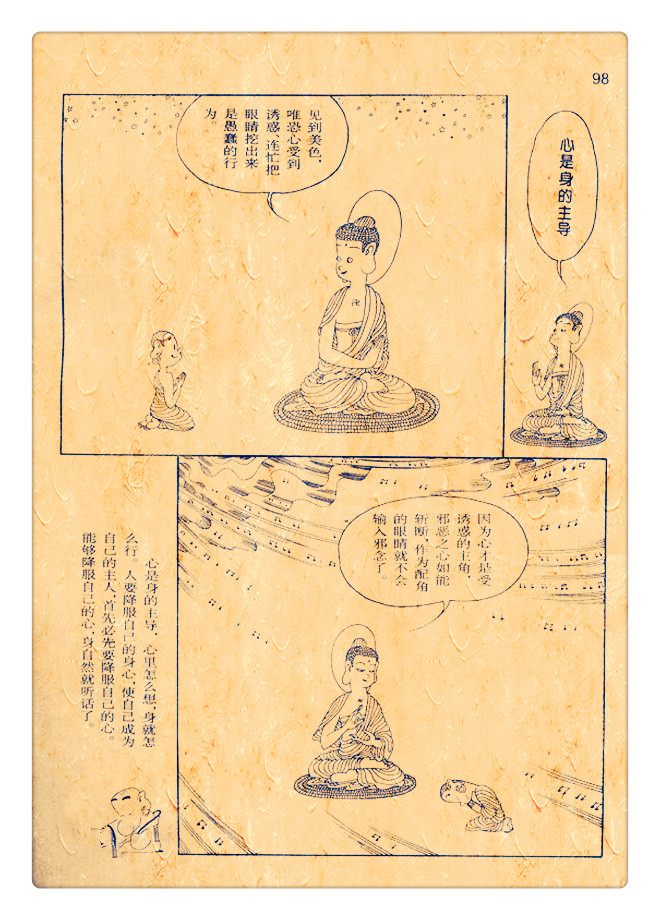 98
心是身的主导
见到美色，
唯恐心受到
诱惑，连忙把
眼睛挖出来
是愚蠢的行
为。
卍
因为心才是受
诱惑的主角，
邪恶之心如能
斩断，作为配角
的眼睛就不会
输入邪念了。
心是身的主导，心里怎么想，身就怎
么行。人要降服自己的身心，使自己成为
自己的主人，首先必先要降服自己的心。
能够降服自己的心，身自然就听话了。